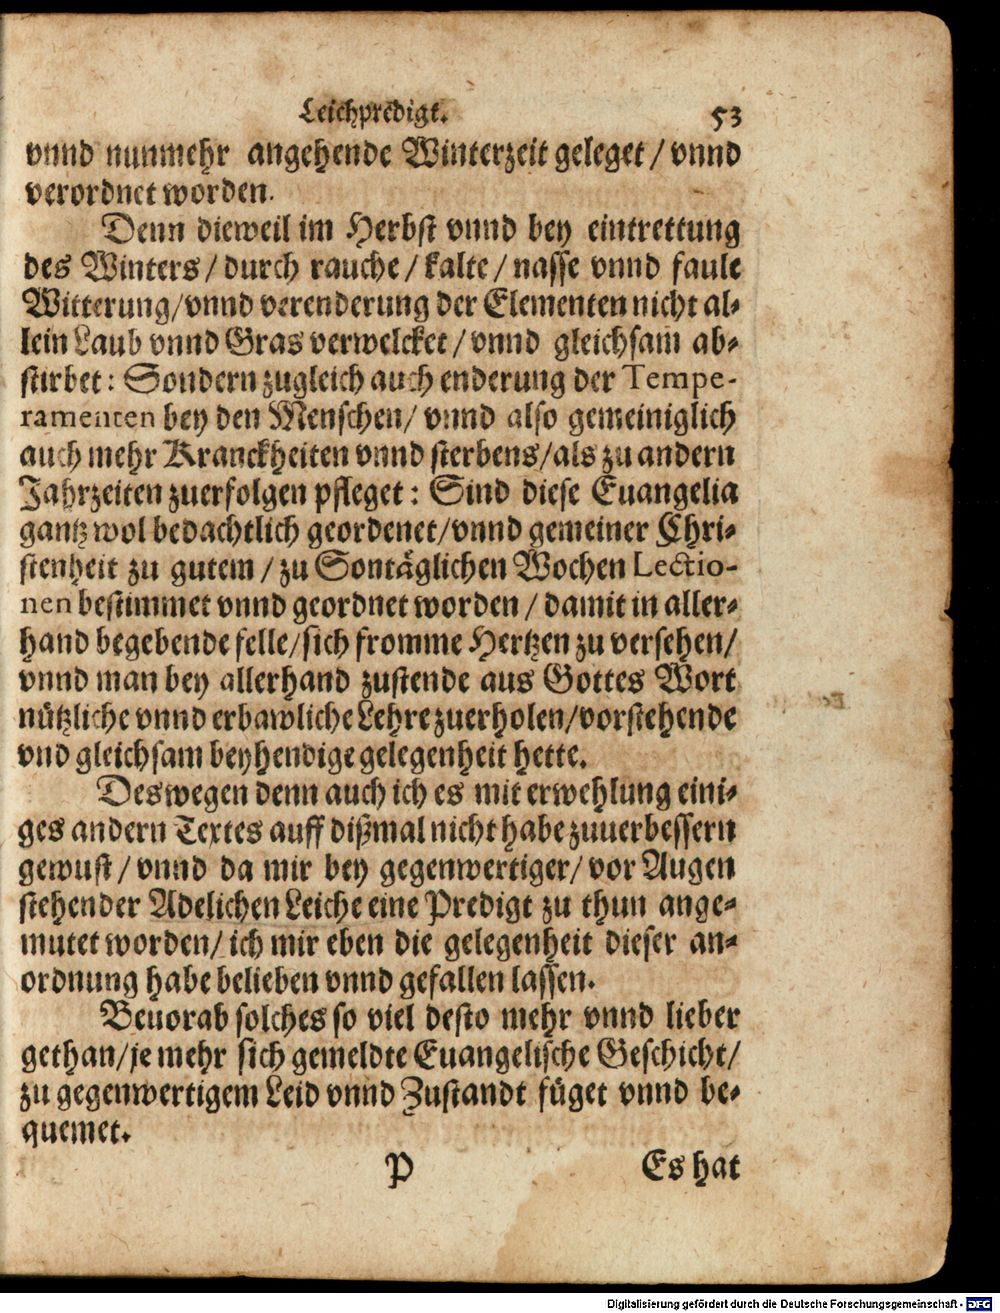 Leichpredigt. 53
vnnd nunmehr angehende Winterzeit geleget / vnnd
verordnet worden.
Denn dieweil im Herbst vnnd bey eintrettung
des Winters / durch rauche / kalte / nasse vnnd faule
Witterung / vnnd verenderung der Elementen nicht al-
lein Laub vnnd Gras verwelcket / vnnd gleichsam ab-
stirbet: Sondern zugleich auch enderung der Tempe-
ramenten bey den Menschen / vnnd also gemeiniglich
auch mehr Kranckheiten vnnd sterbens / als zu andern
Jahrzeiten zuerfolgen pfleget: Sind diese Euangelia
gantz wol bedachtlich geordenet / vnnd gemeiner Chri-
stenheit zu gutem / zu Sontäglichen Wochen Lectio-
nen bestimmet vnnd geordnet worden / damit in aller-
hand begebende felle / sich fromme Hertzen zu versehen /
vnnd man bey allerhand zustende aus Gottes Wort
nützliche vnnd erbawliche Lehre zuerholen / vorstehende
vnd gleichsam beyhendige gelegenheit hette.
Deswegen denn auch ich es mit erwehlung eini-
ges andern Textes auff dißmal nicht habe zuuerbessern
gewust / vnnd da mir bey gegenwertiger / vor Augen
stehender Adelichen Leiche eine Predigt zu thun ange-
mutet worden / ich mir eben die gelegenheit dieser an-
ordnung habe belieben vnnd gefallen lassen.
Beuorab solches so viel desto mehr vnnd lieber
gethan / je mehr sich gemeldte Euangelische Geschicht /
zu gegenwertigem Leid vnnd Zustandt füget vnnd be-
quemet.
P Es hat
Digitalisierung gefördert durch die Deutsche Forschungsgemeinschaft - DFG